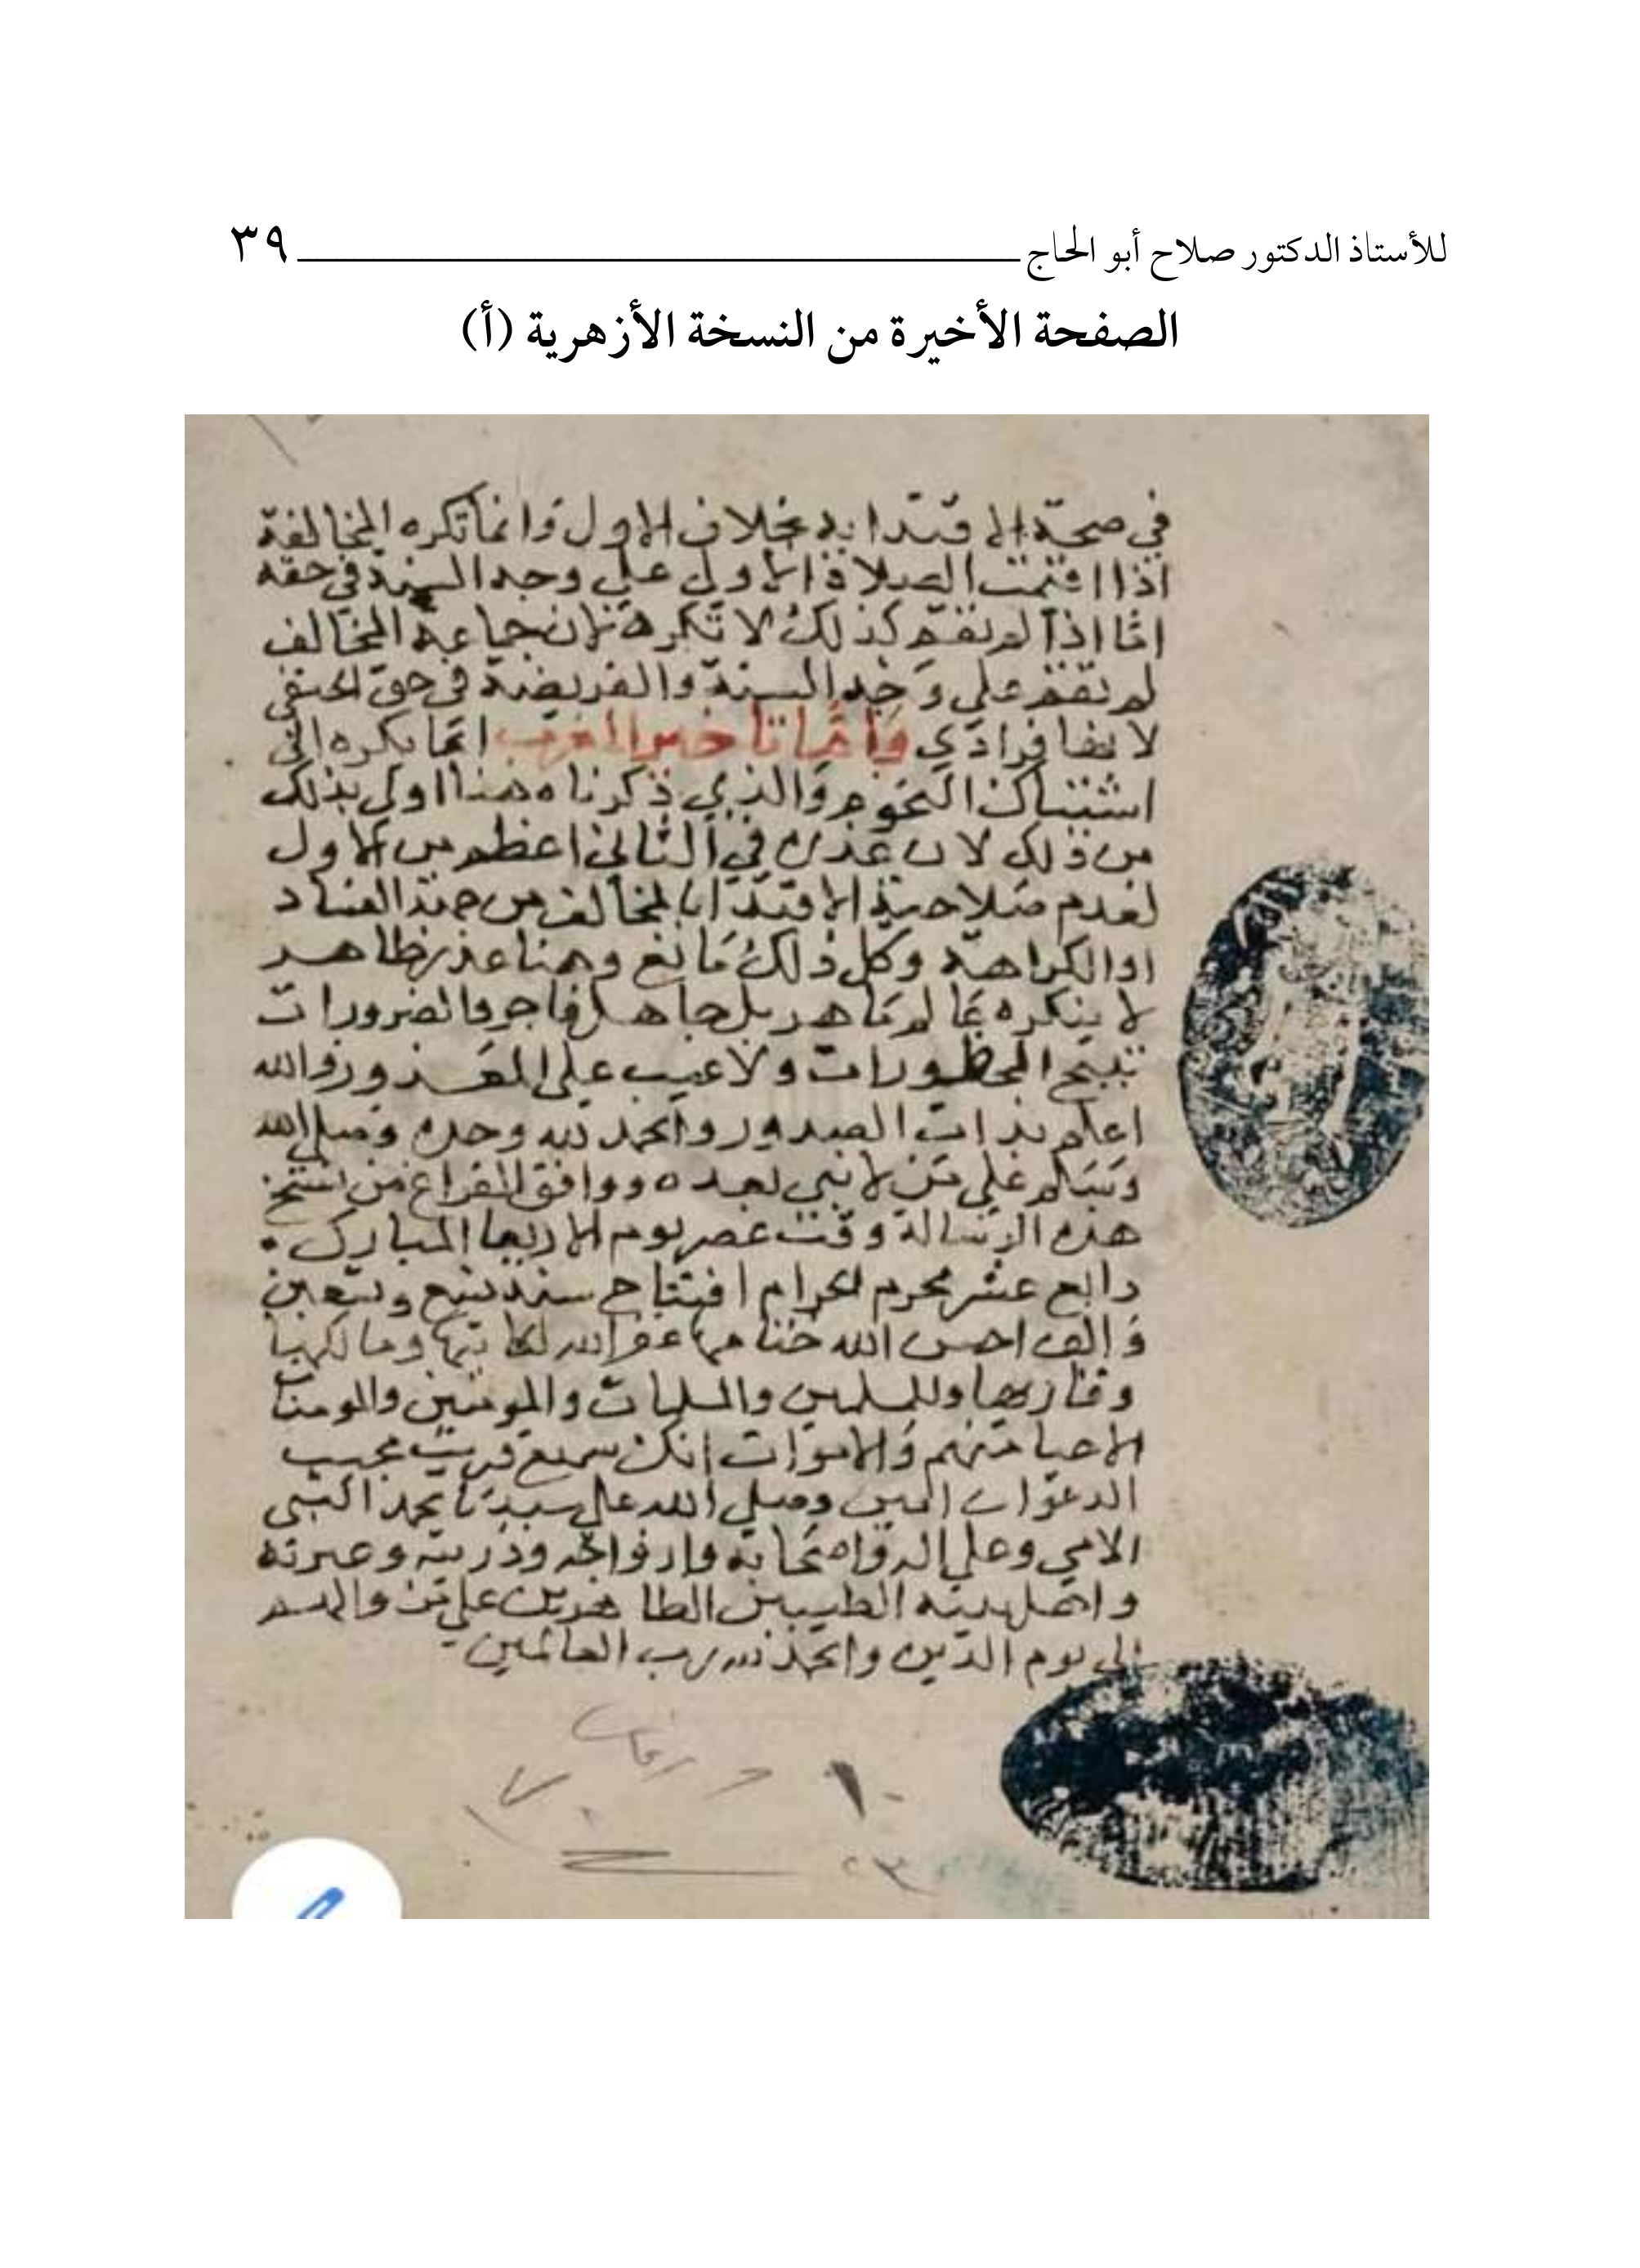 للأستاذ الدكتور صلاح أبو الحاج ـــــــــــــــــــــــــــــــــ ٣٩
الصفحة الأخيرة من النسخة الأزهرية (أ)
في صحة الاقتدا به بخلاف الاول وانما تكره المخالفة
اذا اقيمت الصلاة الاولى على وجه السنة في حقه
اما اذا لم تقم كذلك لا تكره لان جماعة المخالف
لم تقم على وجه السنة والفريضة في حق الحنفي
لانها فرادى واما تاخير المغرب انما يكره الى
اشتباك النجوم والذي ذكرناه هنا اولى بذلك
من ذلك لان عذره في الثاني اعظم من الاول
لعدم صلاحية الاقتدا بالمخالف من جهة الفساد
او الكراهة وكل ذلك مانع وهنا عذر ظاهر
لا ينكره عالم ماهر بل جاهل فاجر والضرورات
تبيح المحظورات ولا عيب على المعذور والله
اعلم بذات الصدور والحمد لله وحده وصلى الله
وسلم على من لا نبي بعده ووافق الفراغ من نسخ
هذه الرسالة وقت عصر يوم الاربعا المبارك
رابع عشر محرم الحرام افتتاح سنة تسع وتسعين
والف احسن الله ختامها عفا الله لكاتبها ومالكها
وقاريها وللمسلمين والمسلمات والمومنين والمومنات
الاحيا منهم والاموات انك سميع قريب مجيب
الدعوات امين وصلى الله على سيدنا محمد النبي
الامي وعلى اله واصحابه وازواجه وذريته وعترته
واهل بيته الطيبين الطاهرين
الى يوم الدين والحمد لله رب العالمين